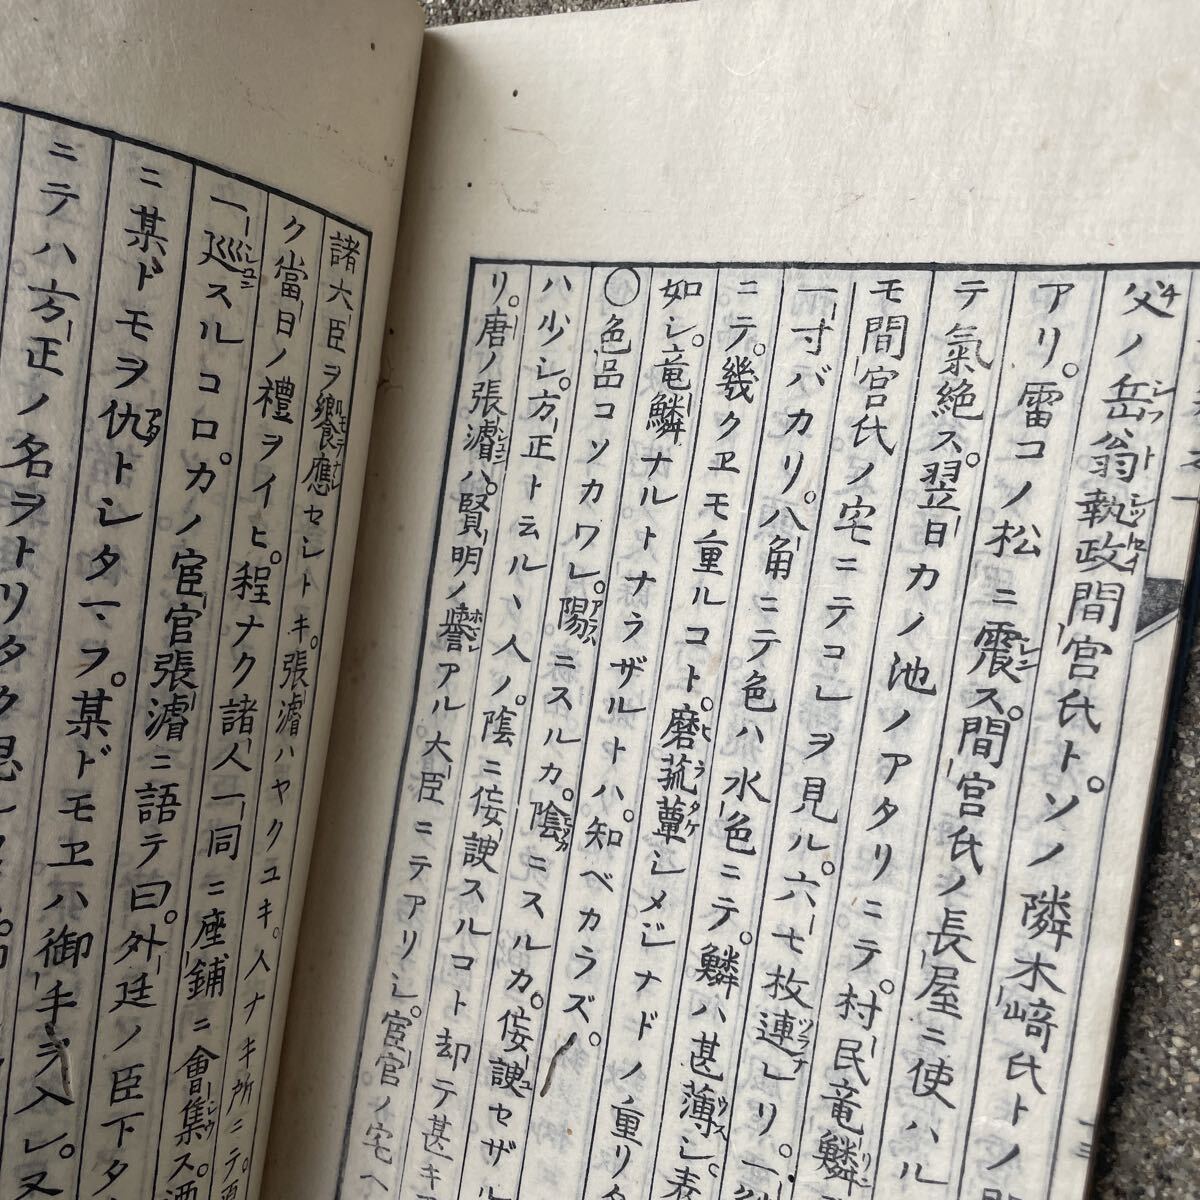 父ノ岳翁執政間宮氏ト。ソノ隣木﨑氏トノ
アリ。雷コノ松ニ震ス。間宮氏ノ長屋ニ使ハル
テ氣絶ス。翌日カノ池ノアタリニテ。村民竜鱗
モ間宮氏ノ宅ニテコレヲ見ル。六七枚連レリ。一
一寸バカリ。八角ニテ色ハ水色ニテ。鱗ハ甚薄シ。表
ニテ。幾クヱモ重ルコト。磨菰蕈シメジナドノ重リタ
如シ。竜鱗ナルトナラザルトハ。知ベカラズ。
○色品コソカワレ。陽ニスルカ。陰ニスルカ。侫諛セザル
ハ少シ。方正ト云ル、人ノ。陰ニ侫諛スルコト却テ甚キア
リ。唐ノ張濬ハ。賢明ノ譽アル大臣ニテアリシ。宦官ノ宅ヘ
諸大臣ヲ饗應セシトキ。張濬ハヤクユキ。人ナキ所ニテ
ク當日ノ禮ヲイヒ。程ナク諸人一同ニ座鋪ニ會集ス。酒
一巡スルコロ。カノ宦官張濬ニ語テ曰。外廷ノ臣下タ
ニ某ドモヲ仇トシタマフ。某ドモヱハ御手ヲ入レ。又
ニテハ方正ノ名ヲトリタク思